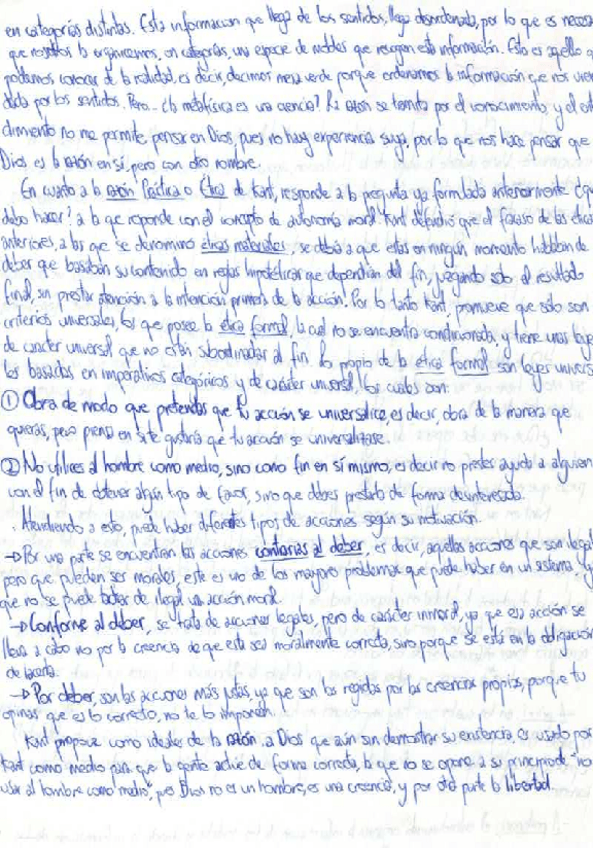 en categorías distintas. Esta información que llega de los sentidos, llega desordenada, por lo que es neces
que nosotros la organicemos, en categorías, una especie de moldes que recogen esta información. Esto es aquello q
podamos conocer de la realidad, es decir, decimos mesa verde porque ordenamos la información que nos vien
dada por los sentidos. Pero... ¿la metafísica es una ciencia? La razón se limita por el conocimiento y el ent
dimiento no me permite pensar en Dios, pues no hay experiencia suya, por lo que nos hace pensar que
Dios es la razón en sí, pero con otro nombre.
En cuanto a la razón Práctica o Ética de Kant, responde a la pregunta ya formulada anteriormente ¿qu
debo hacer? a la que responde con el concepto de autonomía moral. Kant defendió que el fracaso de las éticas
anteriores, a las que se denominó éticas materiales, se debía a que estas en ningún momento hablaban de
deber que basaban su contenido en reglas hipotéticas que dependían del fin, juzgando solo el resultado
final, sin prestar atención a la intención primera de la acción. Por lo tanto Kant, promueve que sólo son
criterios universales, los que posee la ética formal, la cual no se encuentra condicionada, y tiene unas leye
de carácter universal que no están subordinadas al fin. Lo propio de la ética formal son leyes univers
las basadas en imperativos categóricos y de carácter universal, los cuales son:
① Obra de modo que pretendas que tu acción se universalice, es decir, obra de la manera que
quieras, pero piensa en si te gustaría que tu acción se universalizase.
② No utilices al hombre como medio, sino como fin en sí mismo, es decir no prestes ayuda a alguien
con el fin de obtener algún tipo de favor, sino que debes prestarlo de forma desinteresada.
. Atendiendo a esto, puede haber diferentes tipos de acciones según su motivación.
→ Por una parte se encuentran las acciones contrarias al deber, es decir, aquellas acciones que son ilegal
pero que pueden ser morales, este es uno de los mayores problemas que puede haber en un sistema, y
que no se puede tachar de ilegal una acción moral.
→ Conforme al deber, se trata de acciones legales, pero de carácter inmoral, ya que esa acción se
lleva a cabo no por la creencia de que esta sea moralmente correcta, sino porque se está en la obligación
de hacerla.
→ Por deber, son las acciones más justas, ya que son las regidas por las creencias propias, porque tu
opinas que es lo correcto, no te lo imponen.
Kant propone como ideales de la razón, a Dios que aún sin demostrar su existencia, es usado por
Kant como medio para que la gente actúe de forma correcta, lo que no se opone a su principio de "no
usar al hombre como medio", pues Dios no es un hombre, es una creencia, y por otra parte la libertad